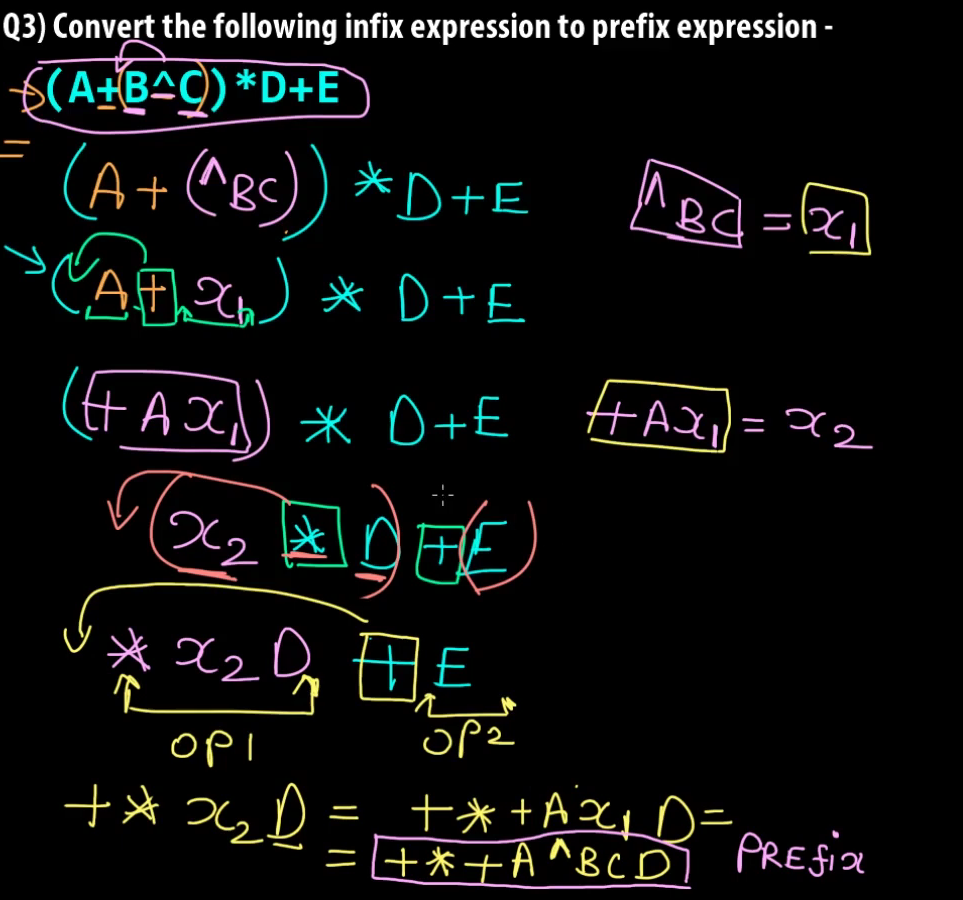 Q3) Convert the following infix expression to prefix expression -
(A+(B^C))*D+E
= (A + (^BC)) * D + E
^BC = x1
(A + x1) * D + E
(+Ax1) * D + E
+Ax1 = x2
(x2 * D) + (E)
* x2 D + E
OP1 OP2
+ * x2 D = + * + A x1 D =
= + * + A ^ B C D PREfix